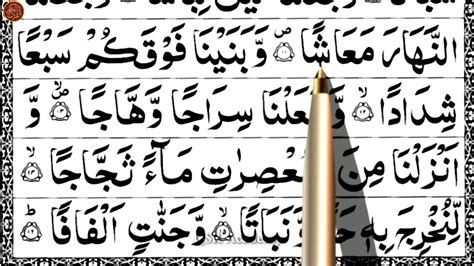 النَّهَارَ مَعَاشًا ۝۱۱ وَّبَنَيْنَا فَوْقَكُمْ سَبْعًا
شِدَادًا ۝۱۲ وَّجَعَلْنَا سِرَاجًا وَّهَّاجًا ۝۱۳ وَّ
اَنْزَلْنَا مِنَ الْمُعْصِرٰتِ مَآءً ثَجَّاجًا ۝۱۴
لِّنُخْرِجَ بِهٖ حَبًّا وَّنَبَاتًا ۝۱۵ وَّجَنّٰتٍ اَلْفَافًا ۝۱۶